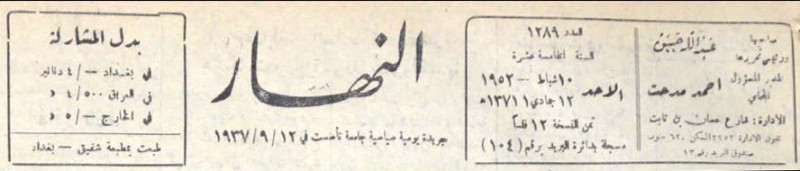 صاحبها
ورئيس تحريرها
عبدالله حسن
المدير المسؤول
المحامي
احمد مدحت
الادارة : شارع عمان بن ثابت
تلفون الادارة ٢٢٥٣ السكن ٦٢٠ جنوب
صندوق البريد رقم ١٣
العدد ١٢٨٩
السنة الخامسة عشرة
الاحد
١٠ شباط — ١٩٥٢
١٢ جمادي١ ١٣٧١ هـ
ثمن النسخة ١٢ فلساً
مسجلة بدائرة البريد برقم (١٠٤)
النهار
جريدة يومية سياسية جامعة تأسست في ١٢/٩/١٩٣٧
بدل المشاركة
في بغداد —/٤ دنانير
في العراق ٥٠٠/٤ د
في الخارج —/٥ د
طبعت بمطبعة شفيق — بغداد